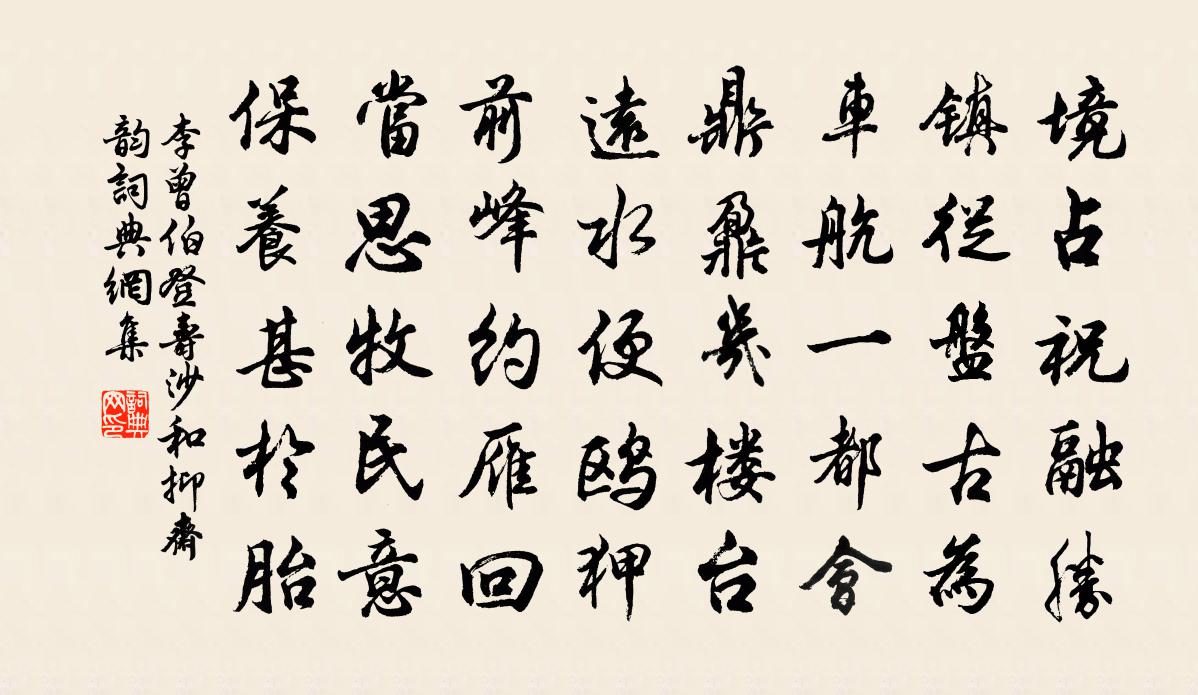 境占祝融勝
鎮從盤古為
車航一都會
鼎鼐幾楼台
遠水便鸥狎
前峰約雁回
當思牧民意
保養甚於胎
李曾伯登壽沙和抑齋
韵詞典網集
詞典
网印